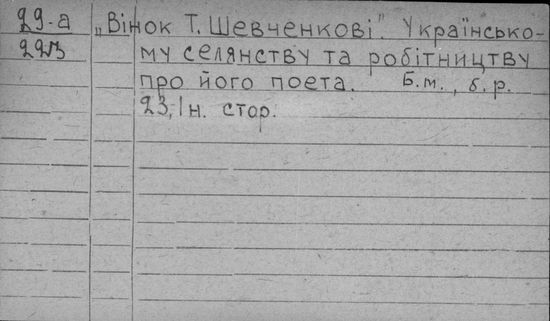 29-а „Вінок Т. Шевченкові". Українсько-
223 му селянству та робітництву
про його поета. Б.м., б.р.
23, 1н. стор.